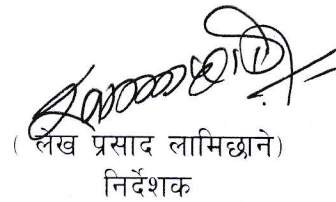 ( लेख प्रसाद लामिछाने)
निर्देशक